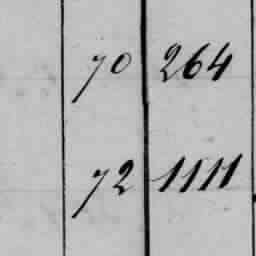 70 264
72 1111